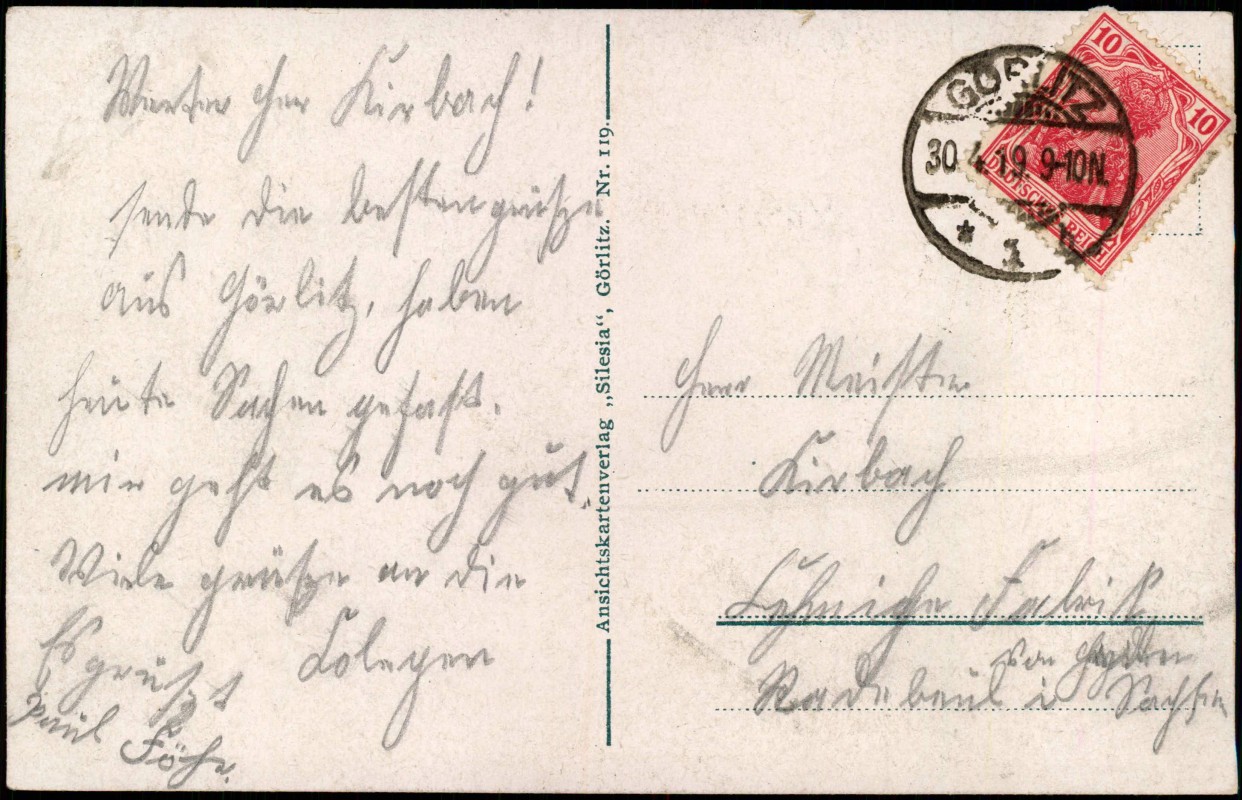 Werter Herr Kirbach!
sende die besten grüße
aus Görlitz, haben
heute Sachen gefast.
mir geht es noch gut.
Viele grüße an die
Colegen
Es grüßt
Paul
Ansichtskartenverlag „Silesia“, Görlitz. Nr. 119.
GÖRLITZ
30.4.19. 9-10N.
* 1 *
10
10
DEUTSCHES REICH
Herr Meister
Kirbach
Chemiche Fabrik
von Heyden
Radebeul i Sachsen